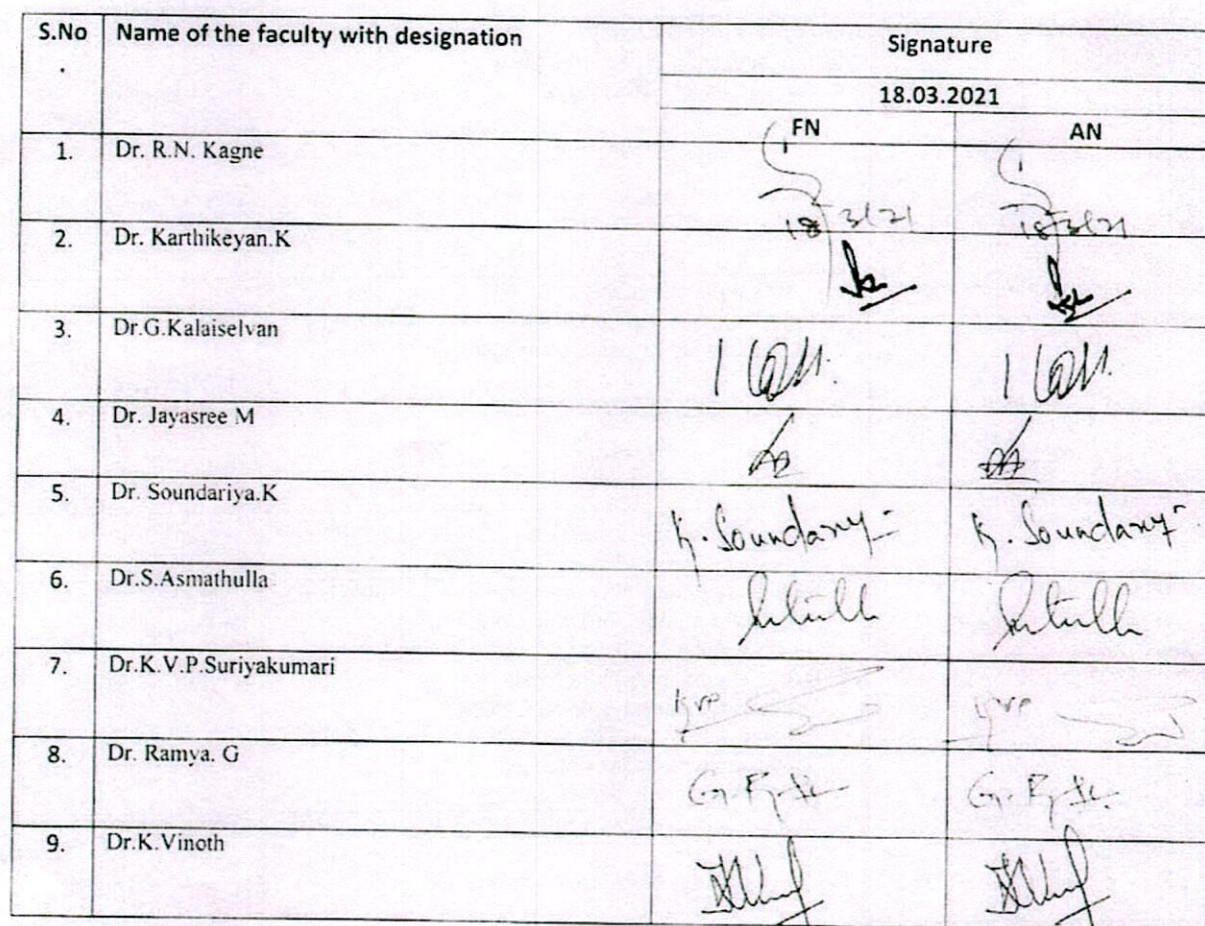 S.No Name of the faculty with designation Signature
.
18.03.2021
FN AN
1. Dr. R.N. Kagne
18/3/21 18/3/21
2. Dr. Karthikeyan.K
3. Dr.G.Kalaiselvan
4. Dr. Jayasree M
5. Dr. Soundariya.K
K. Soundary K. Soundary
6. Dr.S.Asmathulla
7. Dr.K.V.P.Suriyakumari
KVP KVP
8. Dr. Ramya. G
9. Dr.K.Vinoth